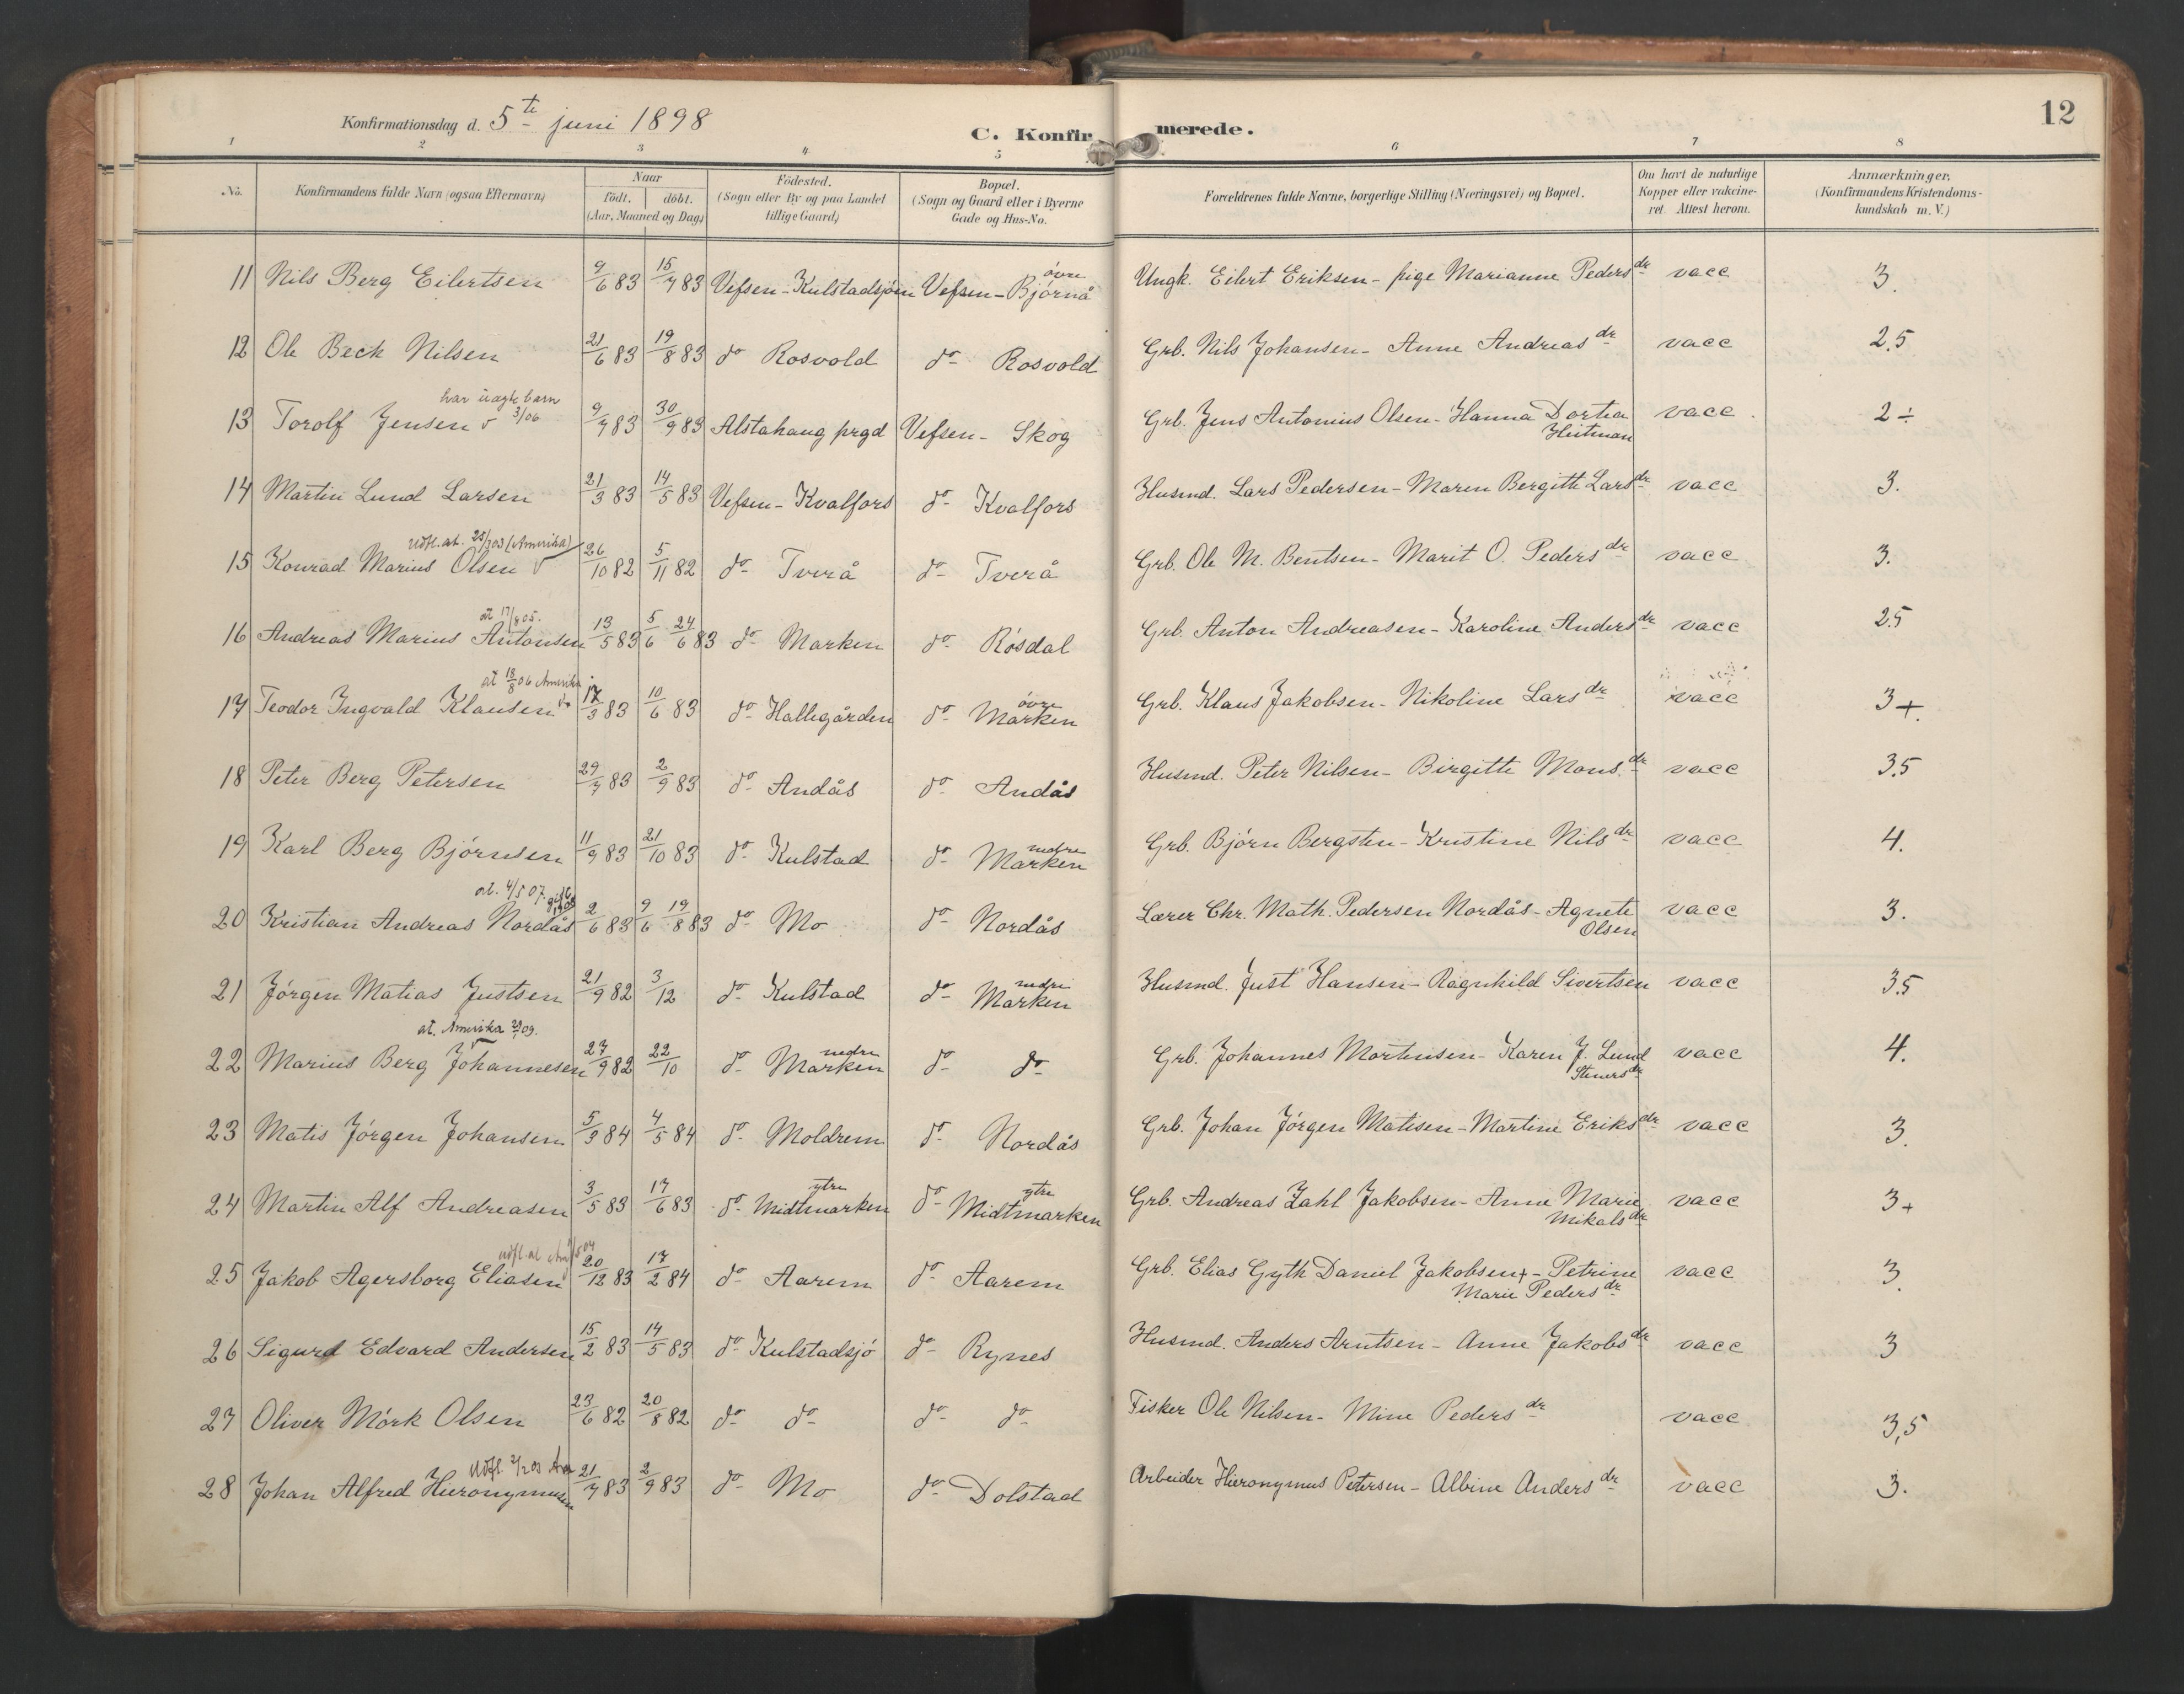 12
Konfirmationsdag d. 5te juni 1898
C. Konfirmerede.
1 2 3 4 5 6 7 8
No. Konfirmandens fulde Navn (ogsaa Efternavn) Naar födt. döbt. (Aar, Maaned og Dag) Födested. (Sogn eller By og paa Landet tillige Gaard) Bopæl. (Sogn og Gaard eller i Byerne Gade og Hus-No. Forældrenes fulde Navne, borgerlige Stilling (Næringsvei) og Bopæl. Om havt de naturlige Kopper eller vakcineret. Attest herom. Anmærkninger. (Konfirmandens Kristendomskundskab m. V.)
11 Nils Berg Eilertsen 9/6 83 15/7 83 Vefsen-Kulstadsjøen Vefsen-Bjørnå øvre Ungk. Eilert Eriksen - pige Marianne Pedersdr vacc 3.
12 Ole Beck Nilsen 21/6 83 19/8 83 do Rosvold do Rosvold Grb. Nils Johansen - Anne Andreasdr vacc 2.5
har uægte barn 3/06
13 Torolf Jensen v 9/7 83 30/9 83 Alstahaug prgd Vefsen - Skog Grb. Jens Antonius Olsen - Hanna Dortea Heitman vacc. 2 ÷
14 Martin Lund Larsen 21/3 83 14/5 83 Vefsen - Kvalfors do Kvalfors Husmd. Lars Pedersen - Maren Bergitte Larsdr vacc 3.
Udfl. at. 23/3 03 (Amerika)
15 Konrad Marius Olsen v 26/10 82 5/11 82 do Tverå do Tverå Grb. Ole M. Bentsen - Marit O. Pedersdr vacc 3.
at 17/8 05.
16 Andreas Marius Antonsen 13/5 83 5/6 24/6 83 do Marken do Røsdal Grb. Anton Andreasen - Karoline Andersdr vacc 2.5
at 18/8 06 Amerika
17 Teodor Ingvald Klausen v. 17/3 83 10/6 83 do Hallegården do Marken øvre Grb. Klaus Jakobsen - Nikoline Larsdr vacc 3+.
18 Peter Berg Petersen 29/7 83 2/9 83 do Andås do Andås Husmd. Peter Nilsen - Birgitte Monsdr vacc 3.5
19 Karl Berg Bjørnsen 11/9 83 21/10 83 do Kulstad do Marken nedre Grb. Bjørn Bergsten - Kristine Nilsdr vacc 4.
at. 4/5 07.
20 Kristian Andreas Nordås 2/6 83 9/6 19/8 83 do Mo do Nordås Lærer Chr. Math. Pedersen Nordås - Agnete Olsen vacc 3.
21 Jørgen Matias Justsen 21/9 82 3/12 do Kulstad do Marken nedre Husmd. Just Hansen - Ragnhild Sivertsen vacc 3.5
at. Amerika 2/09.
22 Marius Berg Johannesen 27/9 82 22/10 do Marken nedre do do Grb. Johannes Mortensen - Karen J. Lund Steinersdr vacc 4.
23 Matis Jørgen Johansen 5/3 84 4/5 84 do Moldrem do Nordås Grb. Johan Jørgen Matisen - Martine Eriksdr vacc 3.
24 Martin Alf Andreasen 3/5 83 17/6 83 do Midtmarken ytre do Midtmarken ytre Grb. Andreas Zahl Jakobsen - Anne Marie Mikalsdr vacc 3+
udfl. at
25 Jakob Agersborg Eliasen 20/12 83 17/2 84 do Aarem do Aarem Grb. Elias Gyth Daniel Jakobsen+ - Petrine Marie Pedersdr vacc 3.
26 Sigurd Edvard Andersen 15/2 83 14/5 83 do Kulstadsjø do Rynes Husmd. Anders Arntsen - Anne Jakobsdr vacc 3
27 Oliver Mørk Olsen 23/6 82 20/8 82 do do do do Fisker Ole Nilsen - Mine Pedersdr vacc 3,5
Udfl 2/2 03
28 Johan Alfred Hieronymusen 21/7 83 2/9 83 do Mo do Dolstad Arbeider Hieronymus Petersen - Albine Andersdr vacc 3.